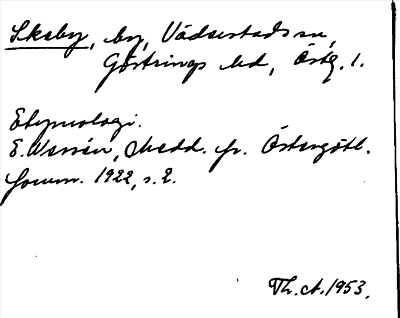 Skeby, by, Väderstads sn,
Göstrings hd, Östg. l.
Etymologi.
E. Wessén, Medd. fr. Östergötl.
fornm. 1922, s. 2.
Th. A. 1953.